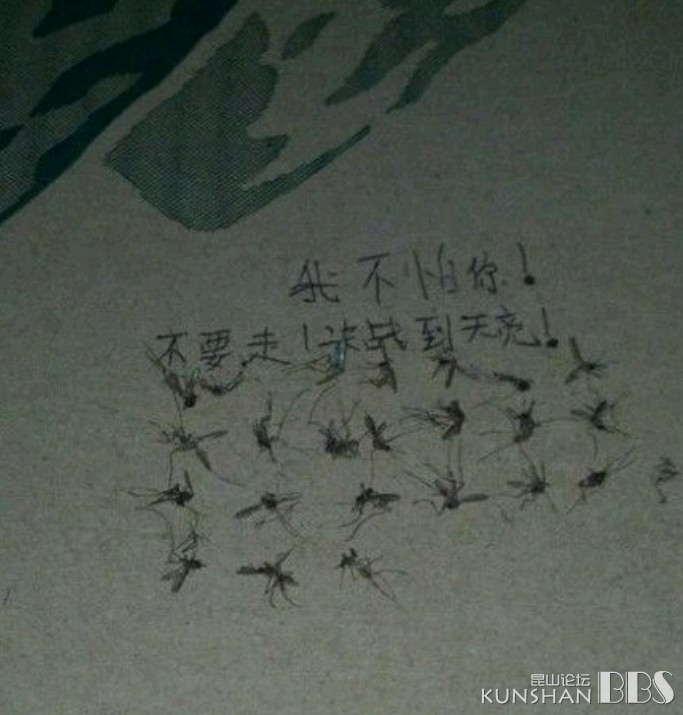 我不怕你！
不要走！决战到天亮！
昆山论坛
KUNSHAN BBS